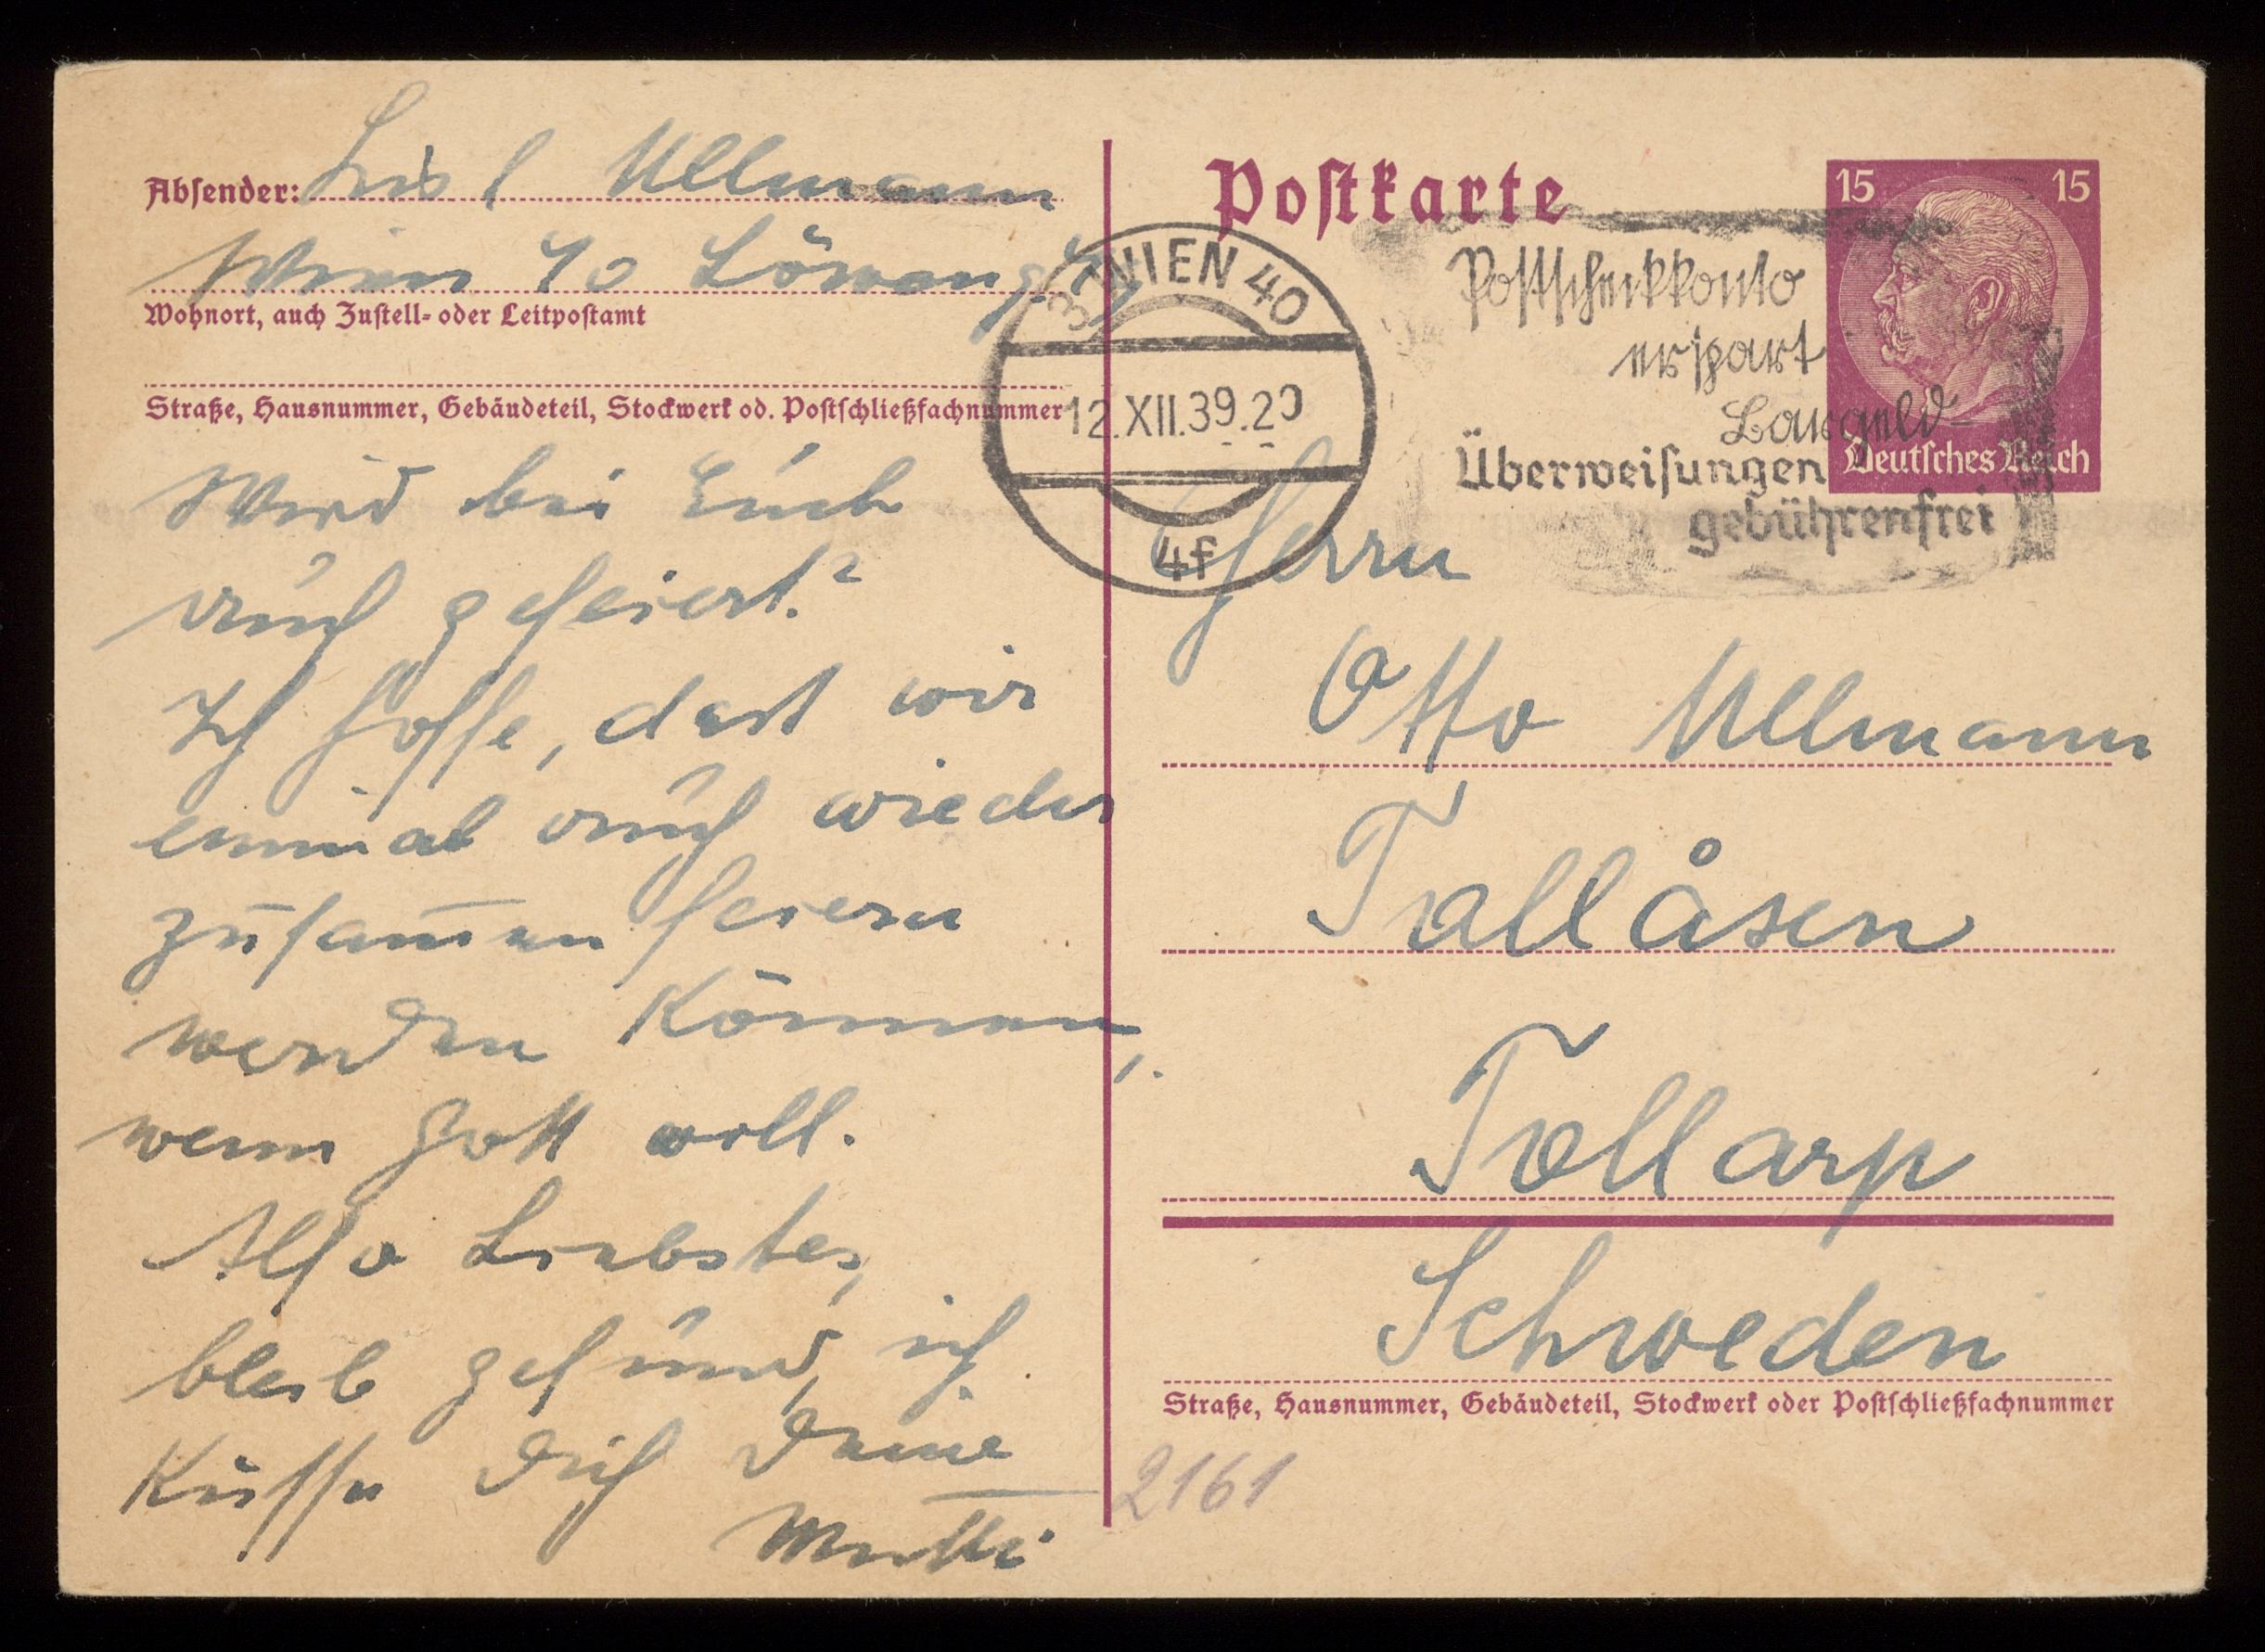 Absender: Lisl Ullmann
Wien 40 Löweng.
Wohnort, auch Zustell- oder Leitpostamt
Straße, Hausnummer, Gebäudeteil, Stockwerk od. Postschließfachnummer
Wird bei Euch
auch gefeiert?
Ich hoffe, dass wir
einmal auch wieder
zusam̄en feiern
werden können,
wenn Gott will.
Also Liebster,
bleib gesund, ich
küsse Dich Deine
Mutti
Postkarte
15 15
Deutsches Reich
WIEN 40
12.XII.39.20
4f
Postscheckkonto
erspart
Bargeld-
Überweisungen
gebührenfrei
Herrn
Otto Ullmann
Tallåsen
Tollarp
Schweden
Straße, Hausnummer, Gebäudeteil, Stockwerk oder Postschließfachnummer
2161